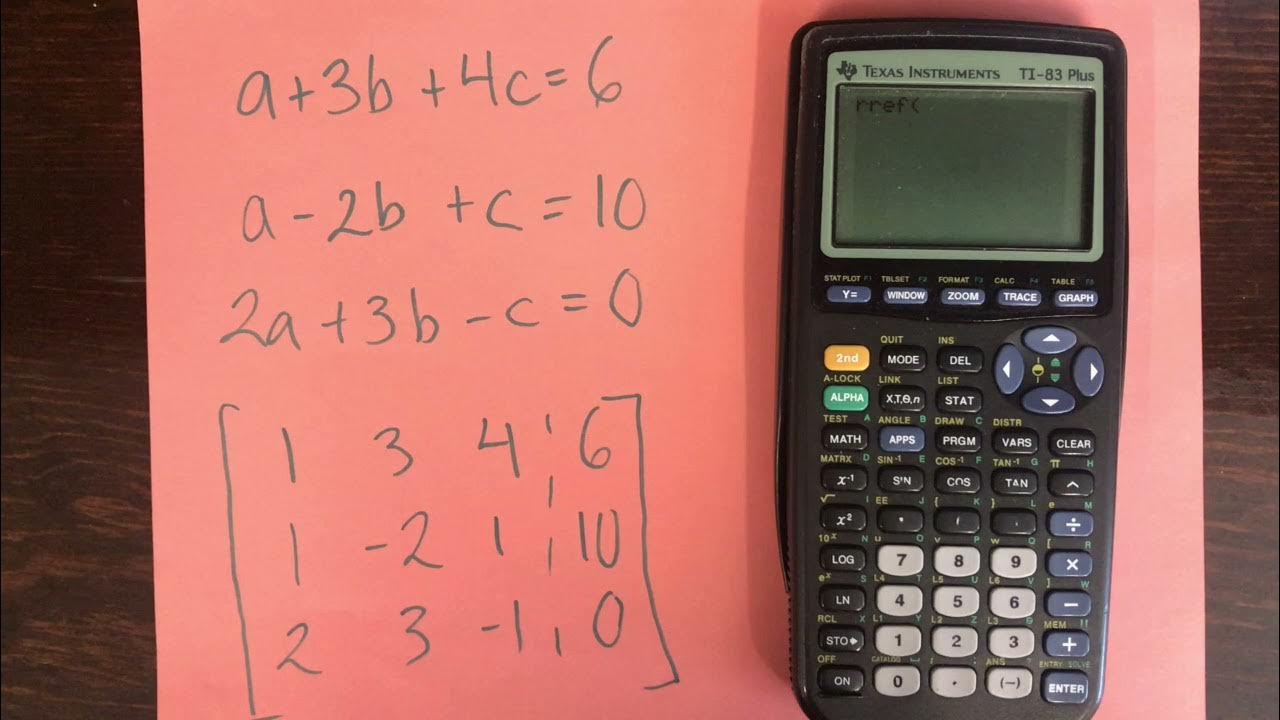 a+3b+4c=6
a-2b+c=10
2a+3b-c=0
1 3 4 6
1 -2 1 10
2 3 -1 0
TEXAS INSTRUMENTS TI-83 Plus
rref(
STAT PLOT F1 TBLSET F2 FORMAT F3 CALC F4 TABLE F5
Y= WINDOW ZOOM TRACE GRAPH
QUIT INS
2nd MODE DEL
A-LOCK LINK LIST
ALPHA X,T,Θ,n STAT
TEST A ANGLE B DRAW C DISTR
MATH APPS PRGM VARS CLEAR
MATRX D SIN⁻¹ E COS⁻¹ F TAN⁻¹ G π H
x⁻¹ SIN COS TAN ^
√ I EE J { K } L e M
x² , ( ) ÷
10ˣ N u O v P w Q [ R
LOG 7 8 9 ×
eˣ S L4 T L5 U L6 V ] W
LN 4 5 6 −
RCL X L1 Y L2 Z L3 θ MEM "
STO▸ 1 2 3 +
OFF CATALOG ANS ? ENTRY SOLVE
ON 0 . (−) ENTER